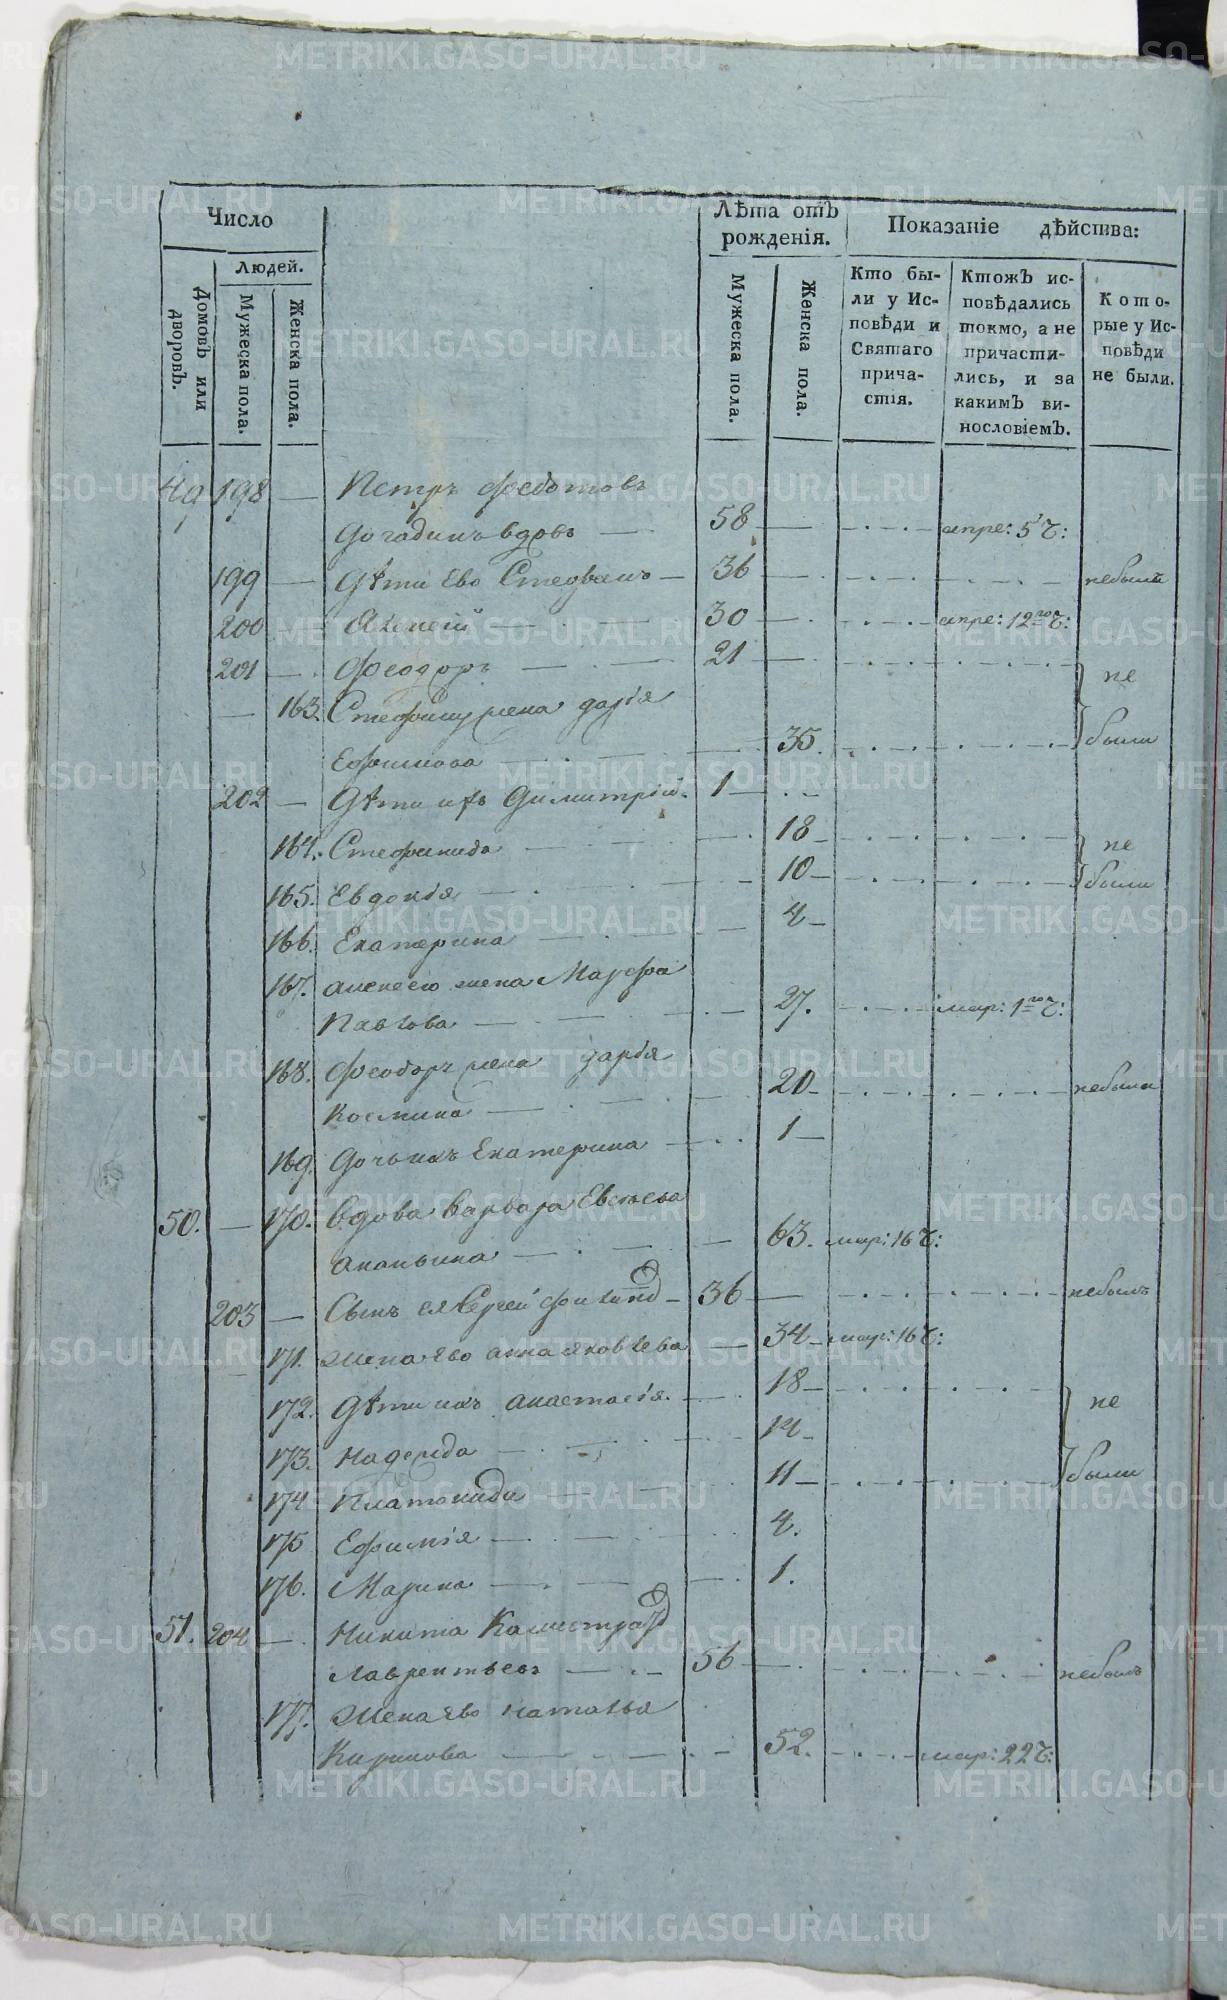 Число
Людей.
Домовъ или дворовъ.
Мужеска пола.
Женска пола.
Лѣта отъ рожденія.
Мужеска пола.
Женска пола.
Показаніе дѣйства:
Кто были у Исповѣди и Святаго причастія.
Ктожъ исповѣдались токмо, а не причастились, и за какимъ винословіемъ.
Которые у Исповѣди не были.
49 198 — Петръ Федотовъ
Догадинъ вдовъ — 58 — апре: 5 Ч:
199 — Дѣти Ево Стефанъ — 36 — небылъ
200 Алексій — 30 — апре: 12го Ч:
201 — Феодоръ — 21 — не
— 163. Стефану жена дарія
Ефимова — 35. были
202 — Дѣти ихъ Димитрій. 1 —
164. Стефанида — 18 — не
165. Евдокія — 10 — были
166. Екатерина — 4 —
167. алексего жена Марфа
Павлова — 27. мар: 1го Ч:
168. Феодоръ жена дарія
Космина — 20 — небыла
169. Дочь ихъ Екатерина — 1 —
50. — 170. Вдова Варвара
Ананьина — 63. мар: 16 Ч:
203 — Сынъ ея Сергей — 36 — небылъ
171. Жена Ево анна яковлева — 34 — мар: 16 Ч:
172. Дѣти ихъ анастасія. — 18 — не
173. Надежда — 14 —
174 Платонида — 11 — были
175 Ефимія — 4.
176. Марина — 1.
51. 204 — Никита Калистрат
Лаврентьевъ — 56 — небылъ
177. Жена Ево наталья
Карпова — 52. мар: 22 Ч:
METRIKI.GASO-URAL.RU